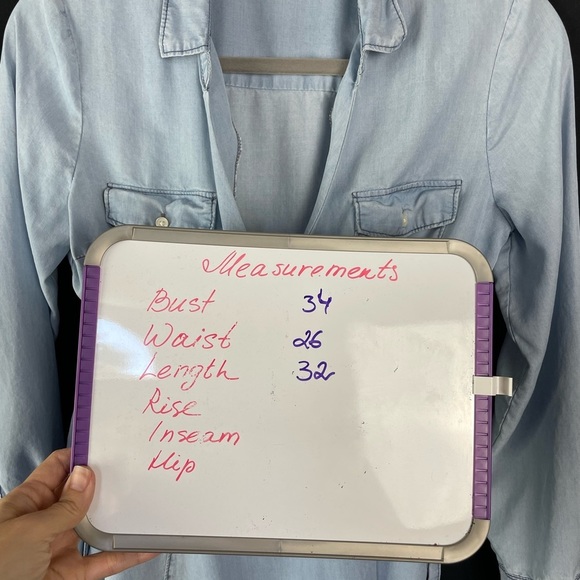 Measurements
Bust 34
Waist 26
Length 32
Rise
Inseam
Hip